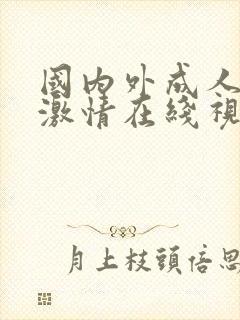 國内外成人
激情在綫視
月上枝頭倍思